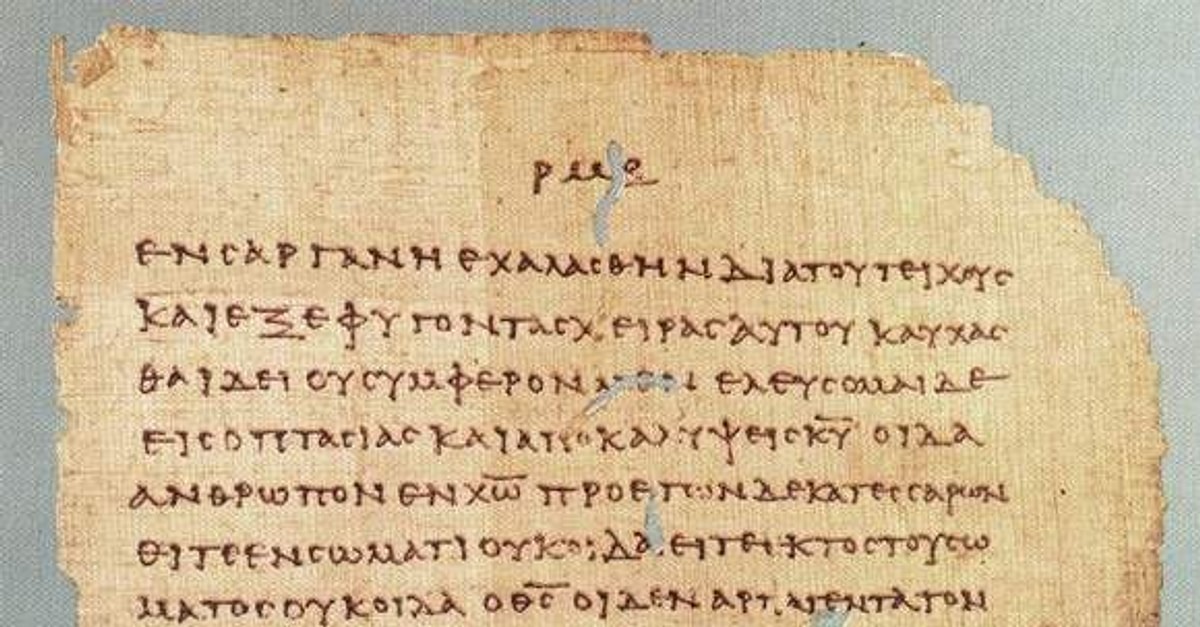 ρμε
ΕΝ CΑΡΓΑΝΗ ΕΧΑΛΑCΘΗΝ ΔΙΑ ΤΟΥ ΤΕΙΧΟΥC
ΚΑΙ ΕΞΕΦΥΓΟΝ ΤΑC ΧΕΙΡΑC ΑΥΤΟΥ ΚΑΥΧΑC
ΘΑΙ ΔΕΙ ΟΥ CΥΜΦΕΡΟΝ ΕΛΕΥCΟΜΑΙ ΔΕ
ΕΙC ΟΠΤΑCΙΑC ΚΑΙ ΑΠΟΚΑΛΥΨΕΙC Κ̅Υ̅ ΟΙΔΑ
ΑΝΘΡΩΠΟΝ ΕΝ Χ̅Ω̅ ΠΡΟ ΕΤΩΝ ΔΕΚΑΤΕCCΑΡΩΝ
ΕΙΤΕ ΕΝ CΩΜΑΤΙ ΟΥΚ ΟΙΔΑ ΕΙΤΕ ΕΚΤΟC ΤΟΥ CΩ
ΜΑΤΟC ΟΥΚ ΟΙΔΑ Ο Θ̅C̅ ΟΙΔΕΝ ΑΡΠΑΓΕΝΤΑ ΤΟΝ